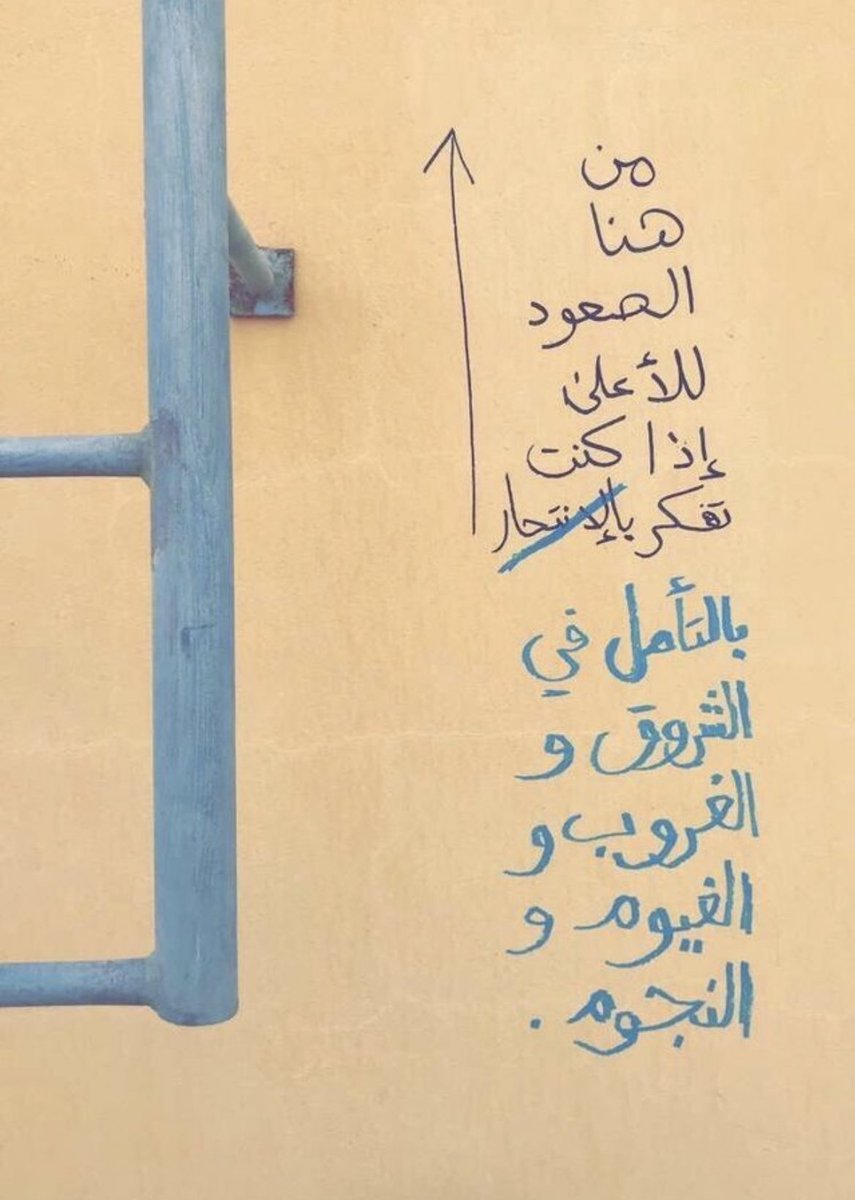 من
هنا
الصعود
للأعلى
إذا كنت
تفكر بالإنتحار
بالتأمل في
الشروق و
الغروب و
الغيوم و
النجوم .